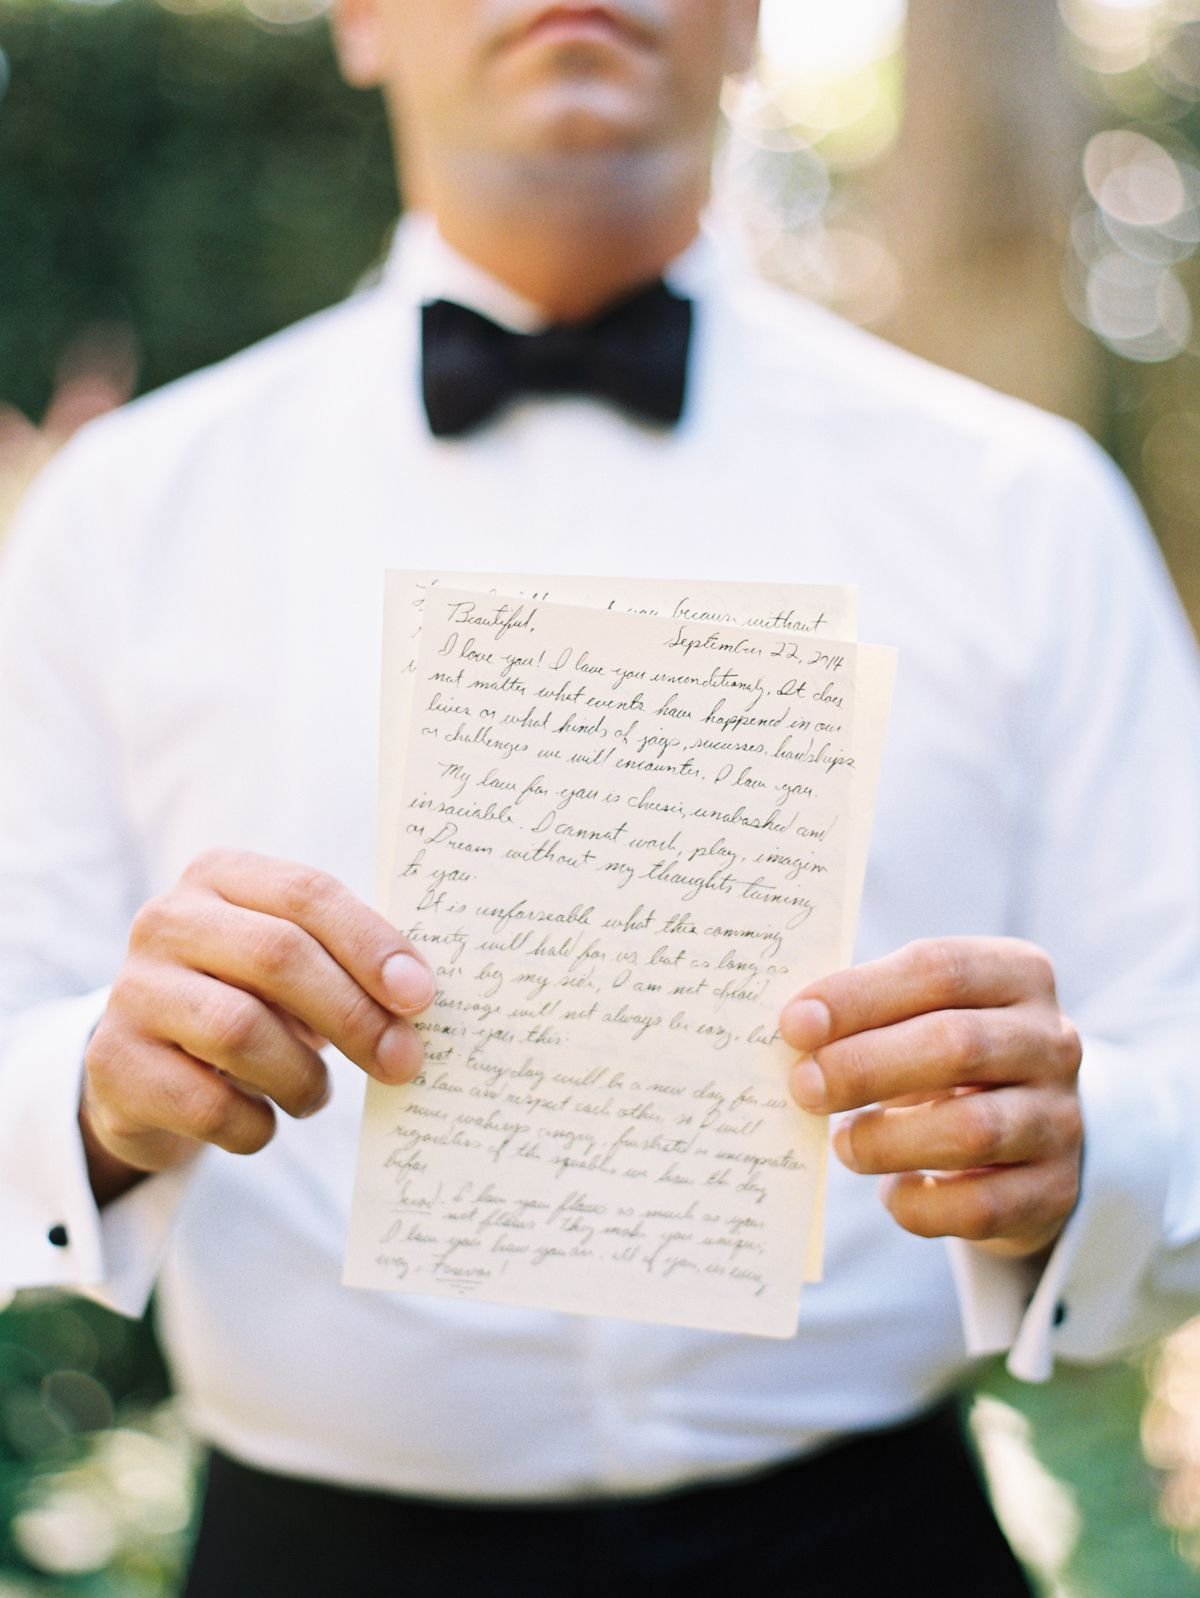 you because without
Beautiful,
September 22, 2014
I love you! I love you unconditionaly. It does
not matter what events have happened in our
lives or what kinds of joys, successes, hardships
or challenges we will encounter. I love you.
My love for you is cheesie, unabashed and
insaciable. I cannot work, play, imagine
or Dream without my thoughts turning
to you.
It is unforseable what this comming
ternity will hold for us but as long as
by my side, I am not afraid.
Marriage will not always be easy, but
you this.
Every day will be a new day for us
to love and respect each other, so I will
never wakeup angry, frustrated or
regardless of the squables we have the day
before
Second. I love your flaws as much as your
not flaws. They make you unique,
I love you how you are. All of you, in every
way. Forever!